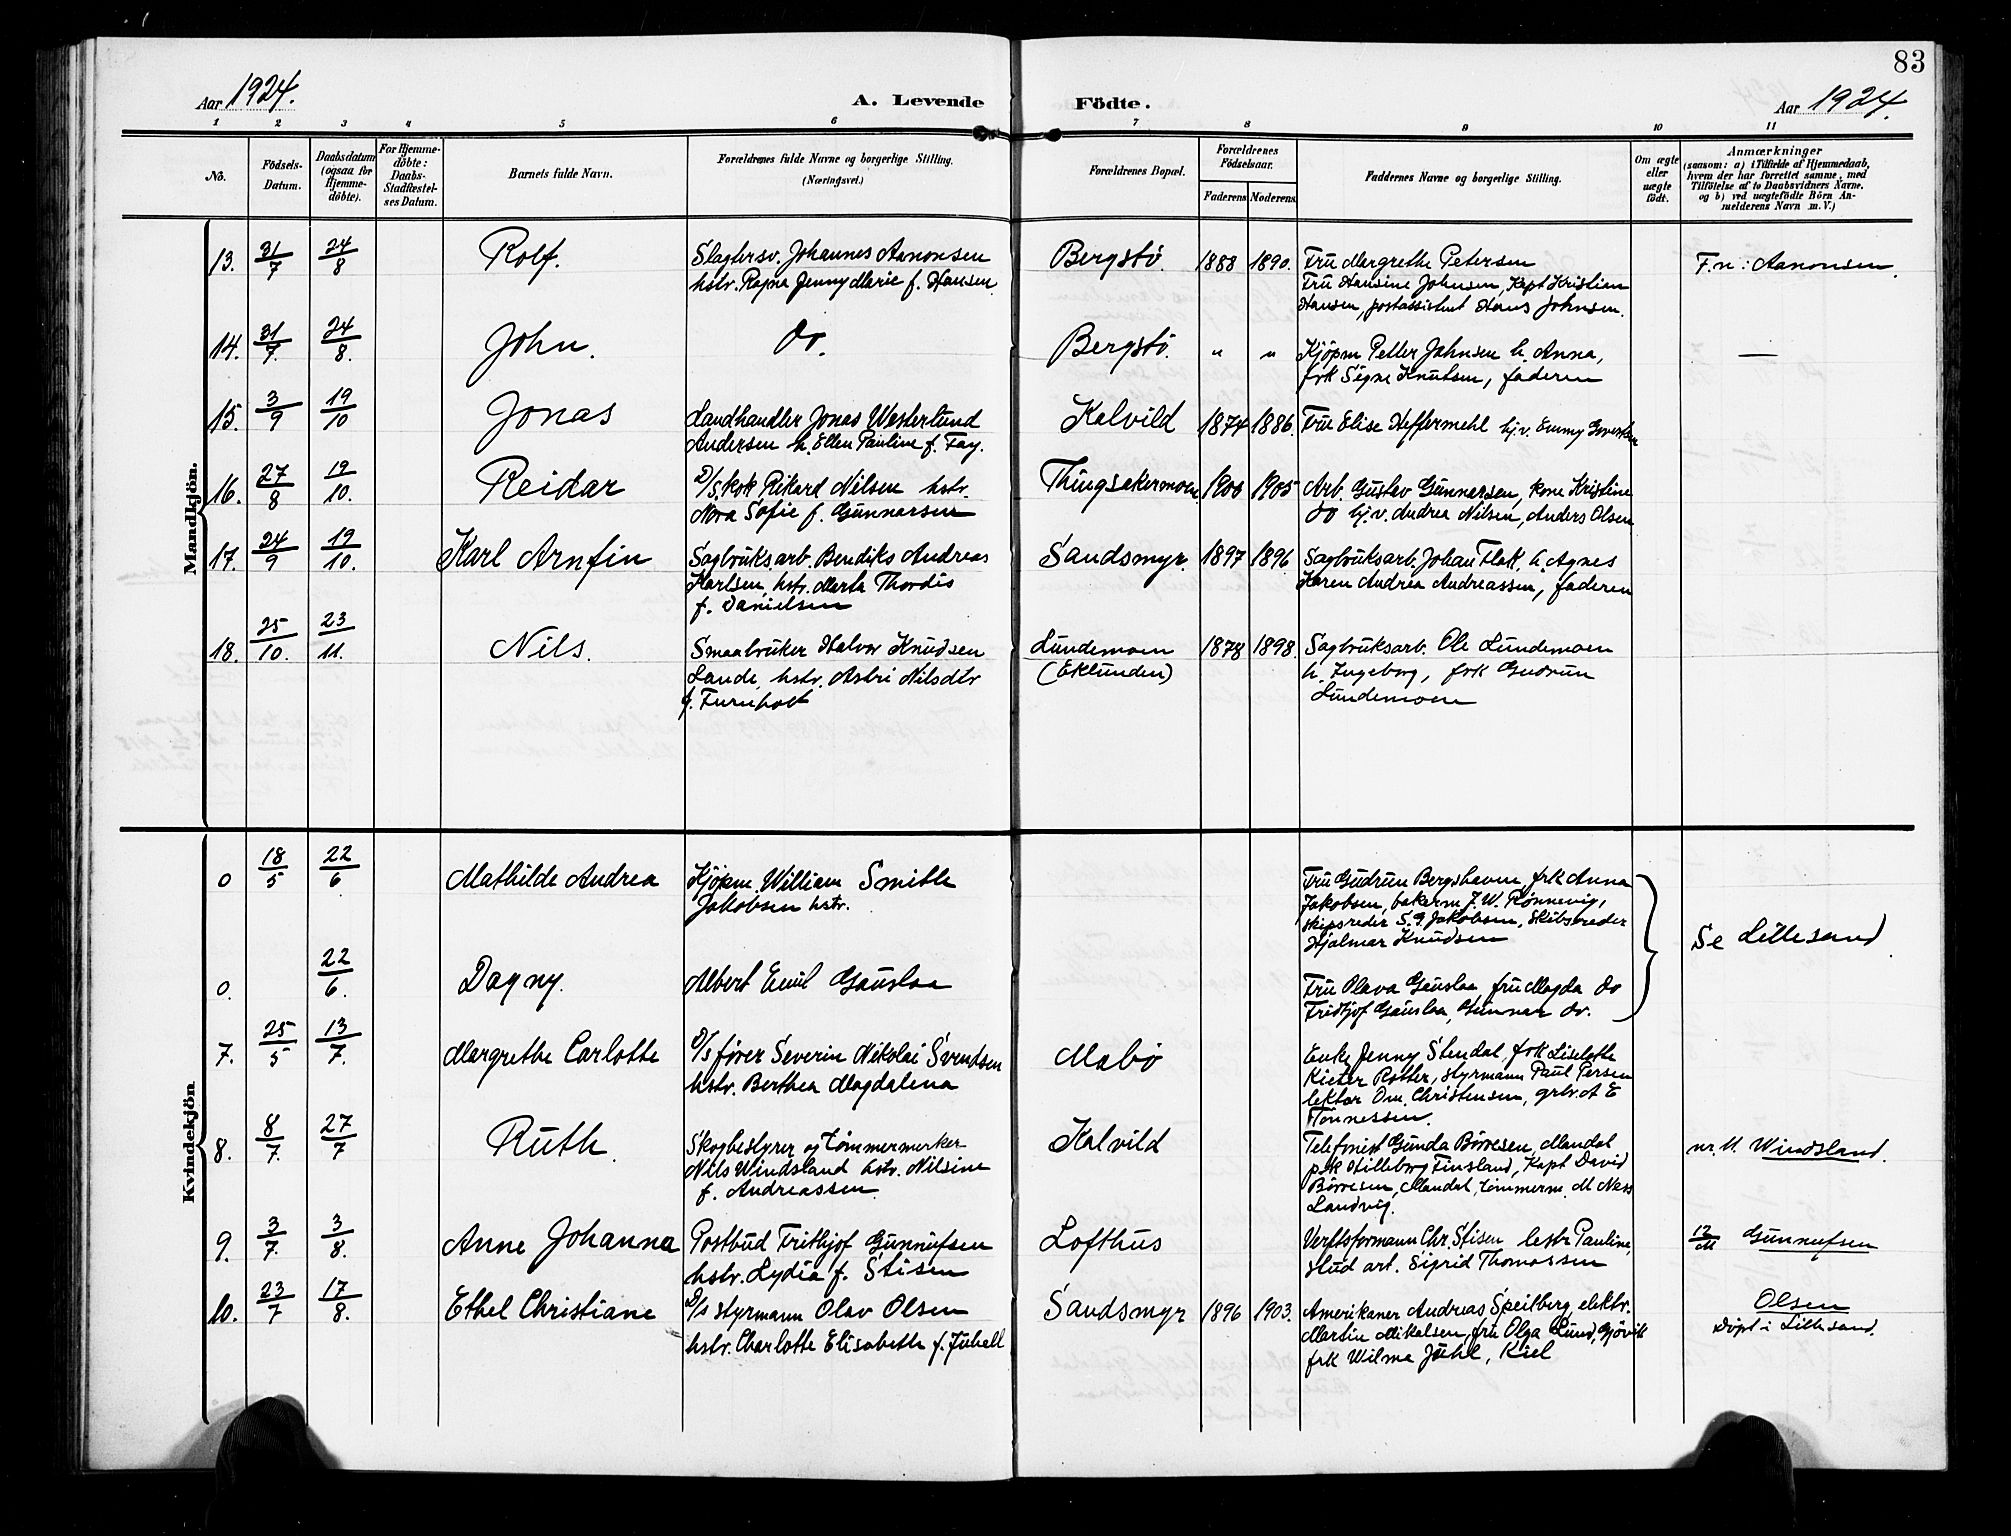 83
Aar 1924.
A. Levende Födte.
Aar 1924.
1 2 3 4 5 6 7 8 9 10 11
No.
Födsels-Datum.
Daabsdatum (ogsaa for Hjemme-döbte).
For Hjemme-döbte: Daabs-Stadfæstel-ses Datum.
Barnets fulde Navn.
Forældrenes fulde Navne og borgerlige Stilling.
(Næringsvei.)
Forældrenes Bopæl.
Forældrenes Födselsaar.
Faderens Moderens
Faddernes Navne og borgerlige Stilling.
Om ægte eller uægte födt.
Anmærkninger
(saasom: a) i Tilfælde af Hjemmedaab,
hvem der har forrettet samme, med
Tilföielse af to Daabsvidners Navne.
og b) ved uægtefödte Börn An-
melderens Navn m. V.)
Mandkjön.
13. 31/7 24/8 Rolf. Slagtersv. Johannes Aanonsen Bergstø 1888 1890. Fru Margrethe Petersen F.n: Aanonsen.
hstr. Ragna Jenny Marie f. Hansen Fru Hansine Johnsen, Kapt Kristian
Hansen, postassistent Hans Johnsen.
14. 31/7. 24/8. John. Do. Bergstø. " " Kjøpm Petter Johnsen h. Anna, —
frk Signe Knutsen, faderen
15. 3/9 19/10 Jonas Landhandler Jonas Westerlund Kalvild 1874 1886. Fru Elise Heffermehl hj.v. Emmy
Andersen h. Ellen Pauline f. Fay.
16. 27/8 19/10. Reidar D/S. kok Rikard Nilsen hstr. Thingsakermoen 1900 1905 Arb. Gustav Gunnarsen, kone Kristine
Nora Sofie f. Gunnarsen do hj.v. Andrea Nilsen, Anders Olsen
17. 24/9 19/10. Karl Arnfin Sagbruksarb. Bendiks Andreas Sandsmyr. 1897 1896 Sagbruksarb. Johan Flak h. Agnes
Karlsen, hstr. Marta Thordis Karen Andrea Andreassen, faderen
f. Danielsen
18. 25/10. 23/11. Nils. Smaabruker Halvor Knudsen Lundemoen 1878 1898. Sagbruksarb. Ole Lundemoen
Lande, hstr. Astri Nilsdtr (Eklunden) h. Ingeborg, frk Gudrun
f. Furuholt Lundemoen
Kvindekjön
0 18/5 22/6 Mathilde Andrea Kjøpm. William Smith Fru Gudrun Bergshavn, frk Anna
Jakobsen hstr. Jakobsen, bakerm J. W. Rønnevig,
skipsreder S. G. Jakobsen, Skibsreder
Hjalmar Knudsen Se Lillesand
0. 22/6. Dagny. Albert Emil Gauslaa Fru Olava Gauslaa fru Magda do
Fridtjof Gauslaa, Gunnar do.
7. 25/5 13/7. Margrethe Carlotte D/s fører Severin Nikolai Svendsen Mabø Enke Jenny Stendal, frk Liselotte
hstr. Berthea Magdalena Kieter Rotter, styrmann Paul Persen
lektor Om. Christensen, grbr. A E
Tønnessen.
8. 8/7. 27/7 Ruth. Skogbestyrer og tømmermerker Kalvild Telefonist Gunda Børresen, Mandal nr. 11. Windsland.
Nils Windsland hstr. Nilsine frk Hilleborg Finsland, Kapt David
f. Andreassen Børresen, Mandal, tømmerm. M Næss
Landvig.
9. 3/7. 3/8. Anne Johanna Postbud Frithjof Gunnufsen Lofthus Verftsformann Chr. Stisen hstr Pauline, 12/11 Gunnufsen
hstr. Lydia f. Stisen stud art. Sigrid Thomassen
10. 23/7 17/8. Ethel Christiane D/s styrmann Olav Olsen Sandsmyr 1896 1903. Amerikaner Andreas Speilberg, elektr. Olsen
hstr. Charlotte Elisabeth f. Martin Mikalsen, fru Olga Lund, Gjøvik Døpt i Lillesand.
frk Wilma Juhl, Kiel